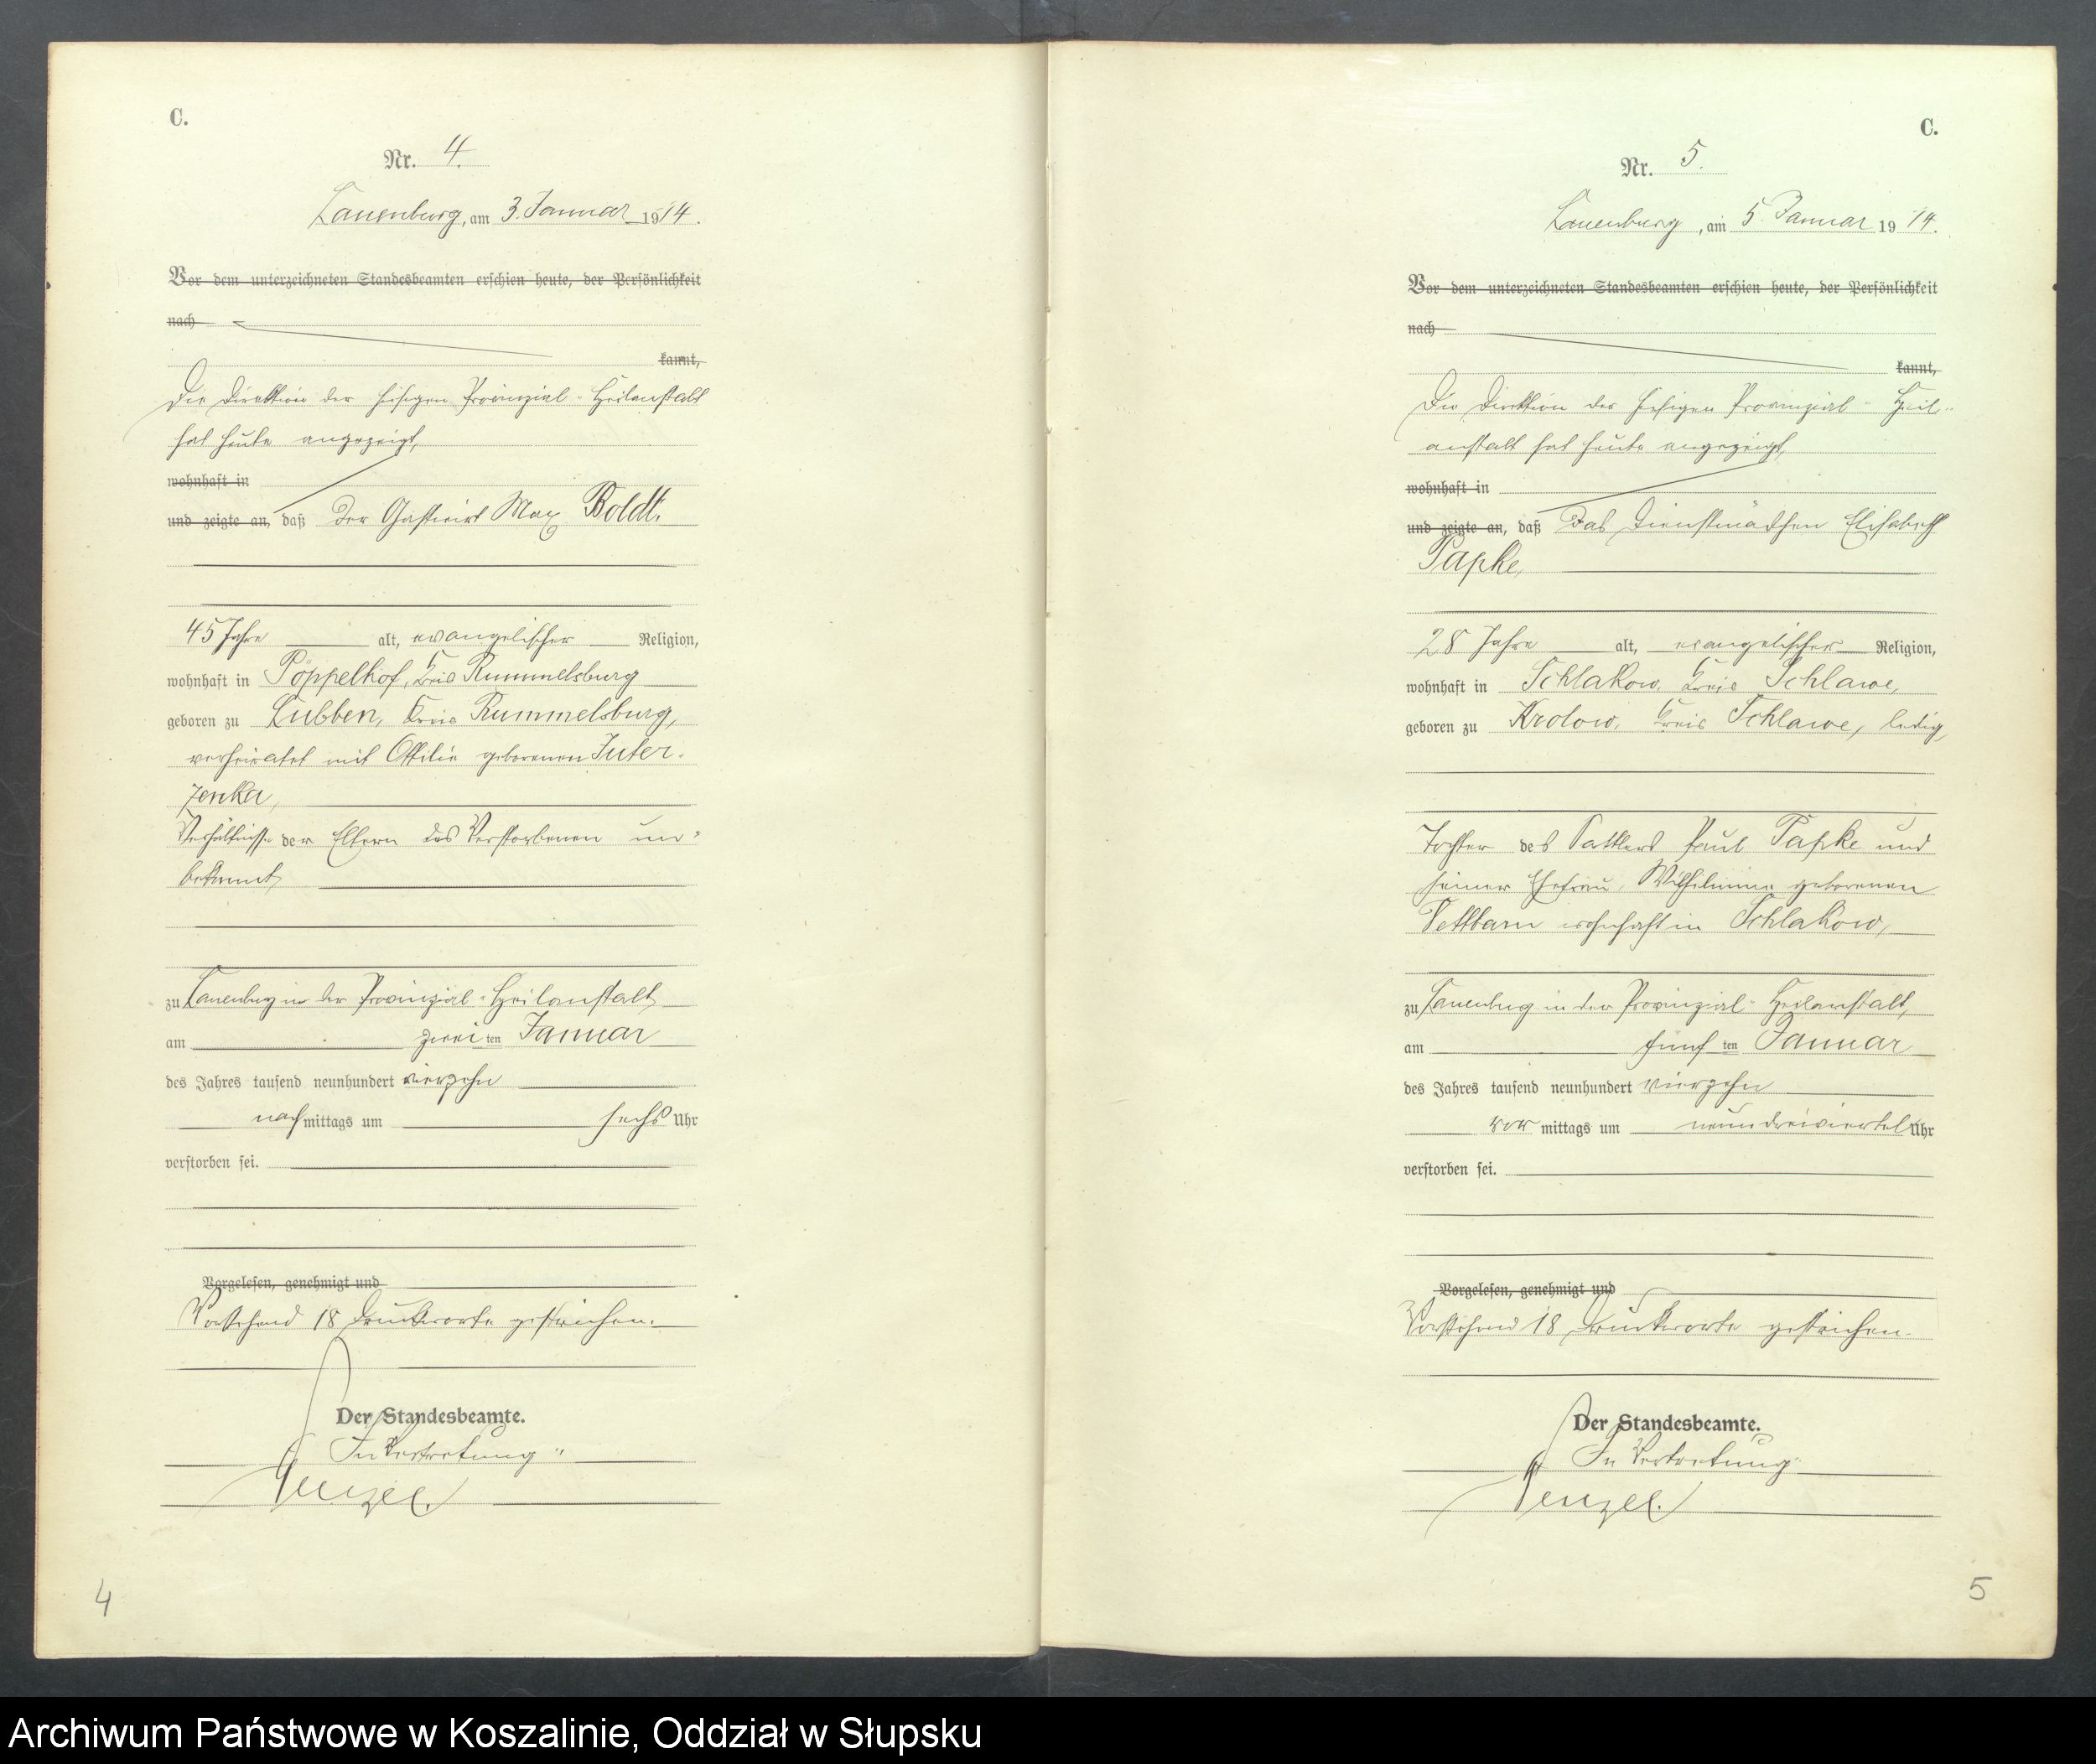 C.
Nr. 4.
Lauenburg, am 3. Januar 1914.
Vor dem unterzeichneten Standesbeamten erschien heute, der Persönlichkeit
nach
kannt,
Die Direktion der hiesigen Provinzial-Heilanstalt
hat heute angezeigt,
wohnhaft in
und zeigte an, daß der Gastwirt Max Boldt,
45 Jahre alt, evangelischer Religion,
wohnhaft in Pöppelhof, Kreis Rummelsburg
geboren zu Lubben, Kreis Rummelsburg,
verheiratet mit Ottilie geborenen Inter-
zenka,
Verhältnisse der Eltern des Verstorbenen un-
bekannt,
zu Lauenburg in der Provinzial-Heilanstalt,
am zweiten Januar
des Jahres tausend neunhundert vierzehn
nachmittags um sechs Uhr
verstorben sei.
Vorgelesen, genehmigt und
Vorstehend 18 Druckworte gestrichen.
Der Standesbeamte.
In Vertretung
4
C.
Nr. 5.
Lauenburg, am 5. Januar 1914.
Vor dem unterzeichneten Standesbeamten erschien heute, der Persönlichkeit
nach
kannt,
Die Direktion der hiesigen Provinzial-Heil-
anstalt hat heute angezeigt,
wohnhaft in
und zeigte an, daß das Dienstmädchen Elisabeth
Papke,
28 Jahre alt, evangelischer Religion,
wohnhaft in Schlakow, Kreis Schlawe,
geboren zu Krolow, Kreis Schlawe, ledig,
Tochter des Sattlers Paul Papke und
seiner Ehefrau, Wilhelmine geborenen
wohnhaft in Schlakow,
zu Lauenburg in der Provinzial-Heilanstalt,
am fünften Januar
des Jahres tausend neunhundert vierzehn
vormittags um neundreiviertel Uhr
verstorben sei.
Vorgelesen, genehmigt und
Vorstehend 18 Druckworte gestrichen.
Der Standesbeamte.
In Vertretung
5
Archiwum Państwowe w Koszalinie, Oddział w Słupsku